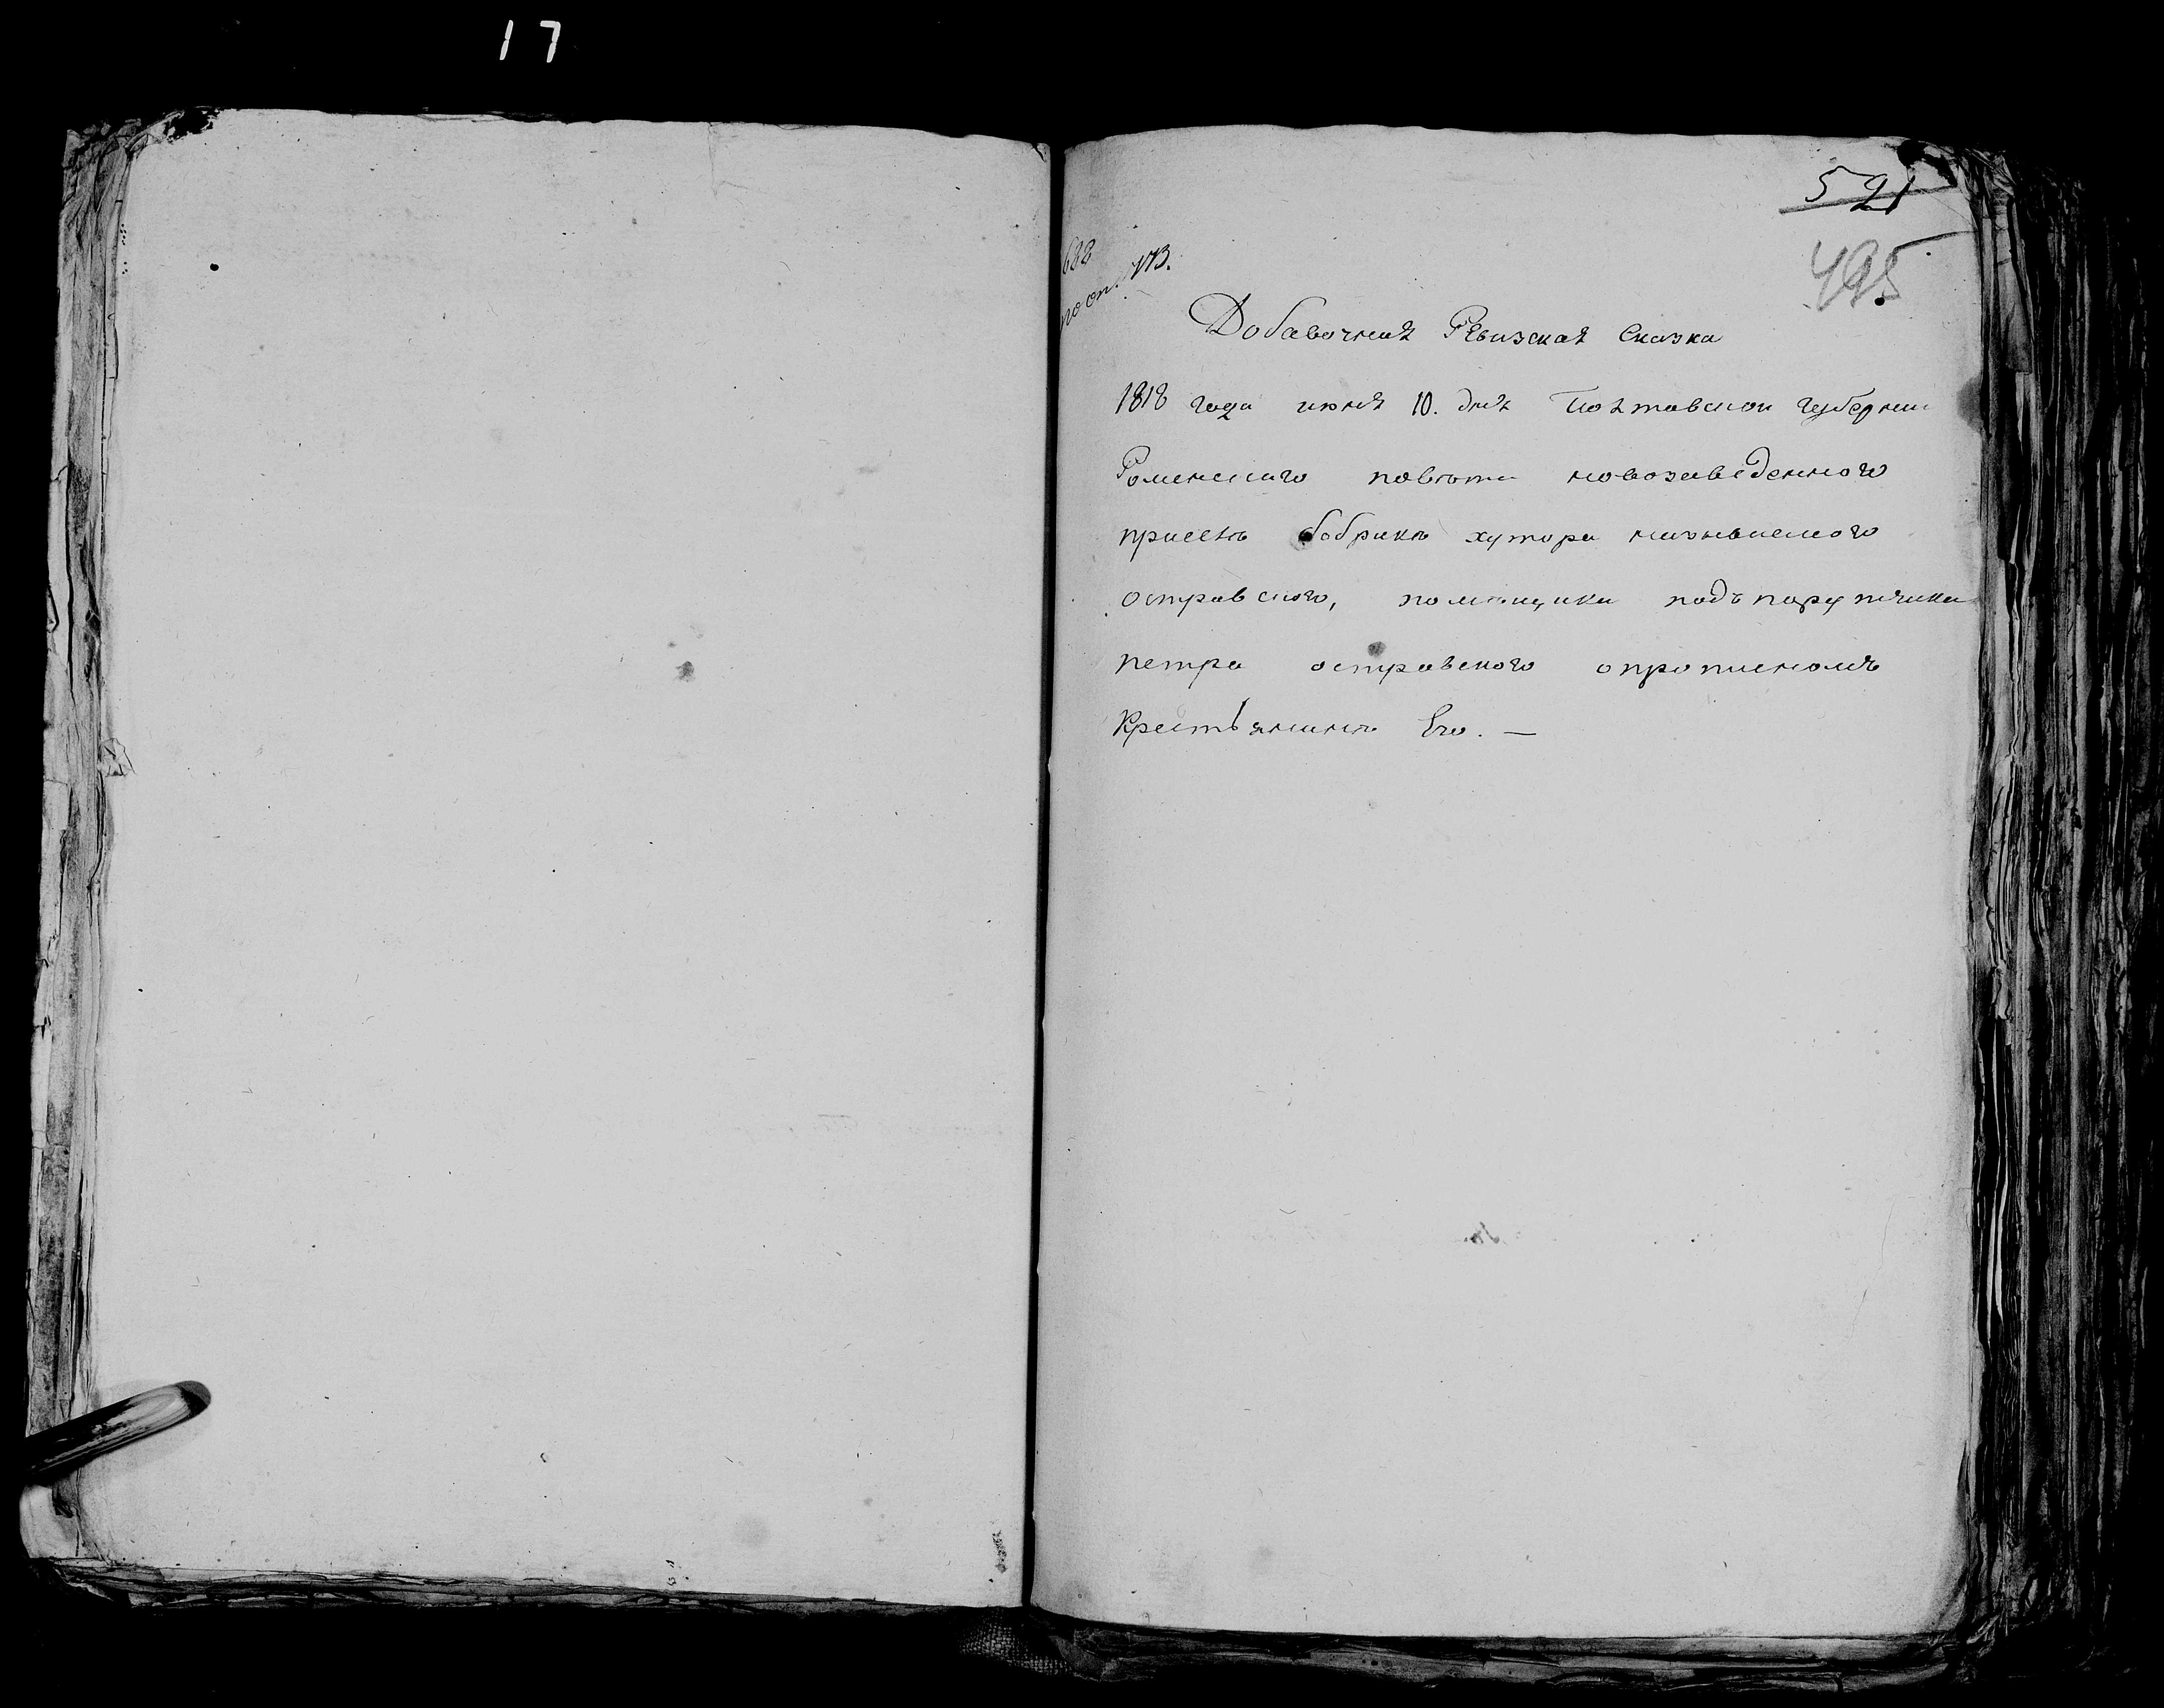 17
591
495
688
по оп. 173.
Добавочная Ревизская Сказка
1818 года июня 10. дня Полтавской губернии
Роменского повъта новозаведенного
приселъ бобрикъ хутора называемого
островского, помъщика подъпорутчика
петра островского опрописномъ
Крестьянинъ Его. —